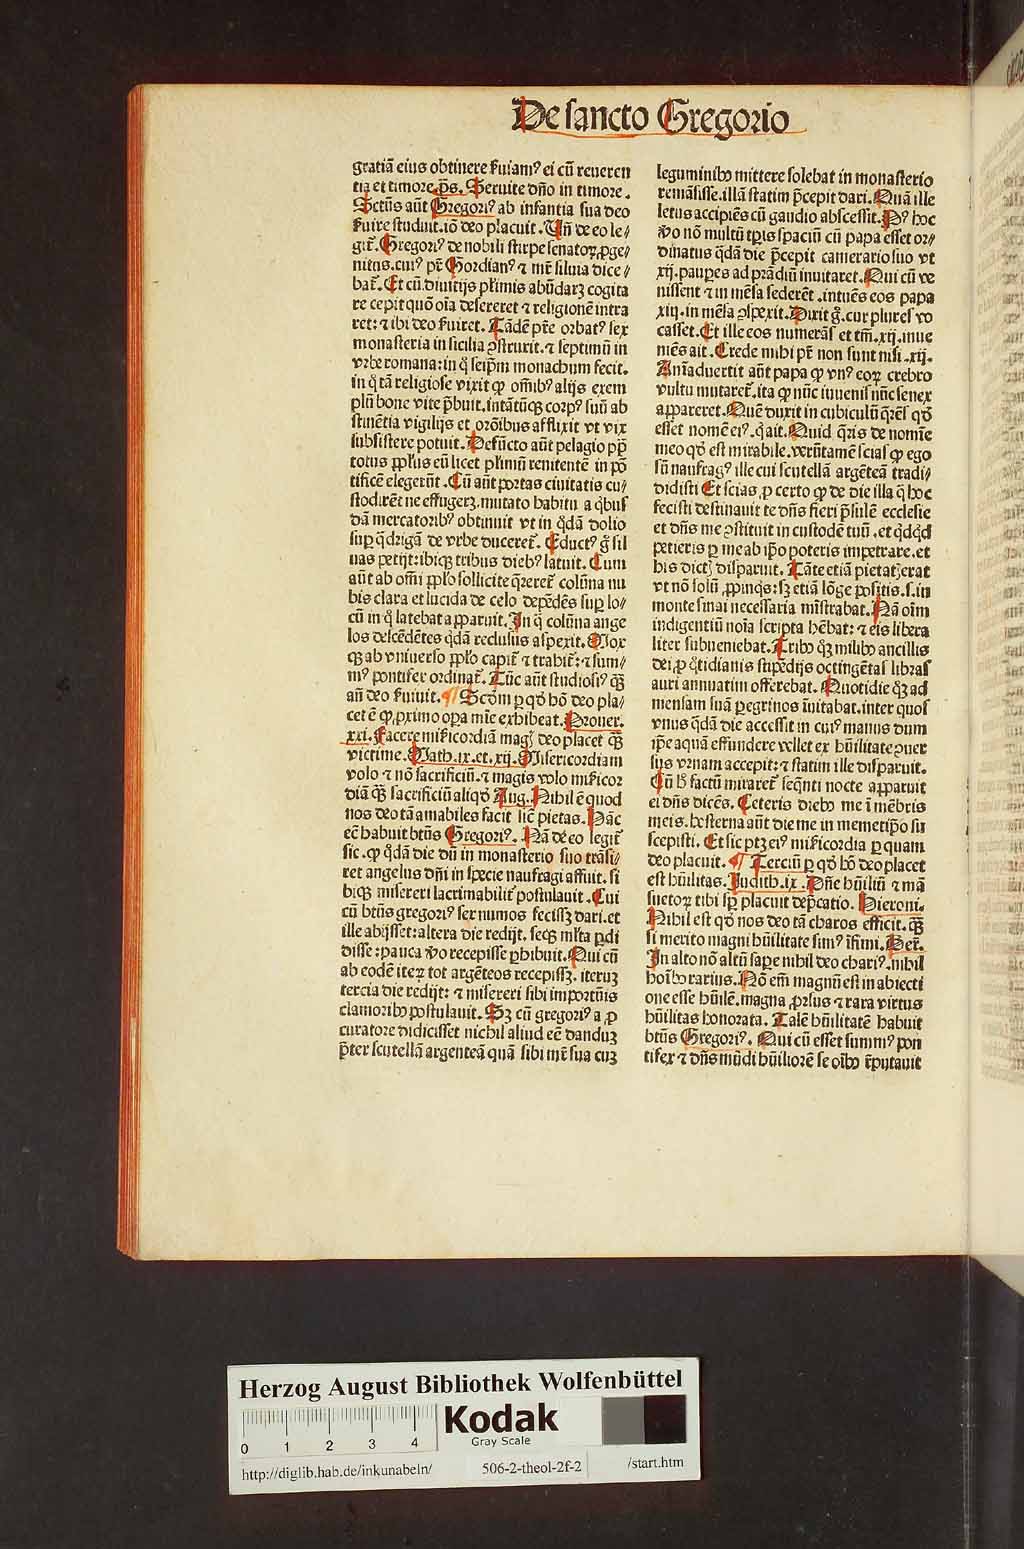 De sancto Gregorio
gratiā eius obtinere ẜuiamꝰ ei cū reueren
tia et timore. p̄s. Seruite dn̄o in timore.
Sctūs aūt Gregoriꝰ ab infantia sua deo
ẜuire studuit. iō deo placuit. Un̄ de eo le⸗
git̄. Gregoriꝰ de nobili stirpe senatoꝝ ꝓge⸗
nitus. cuiꝰ pr̄ Gordianꝰ ⁊ mr̄ siluia dice⸗
bat̄. Et cū diuitijs plimis abūdarꝫ cogita
re cepit quō oīa desereret ⁊ religionē intra
ret: ⁊ ibi deo ẜuiret. Tādē pr̄e orbatꝰ sex
monasteria in sicilia ꝯstruxit. ⁊ septimū in
vrbe romana: in q̊ seip̄m monachum fecit.
in q̊ tā religiose vixit ꝙ om̄ibꝰ alijs exem
plū bone vite p̄buit. intātūqꝫ corpꝰ suū ab
stinētia vigilijs et orōibus afflixit vt vix
subsistere potuit. Defūcto aūt pelagio pp̄
totus ppl̄us eū licet plīmū renitentē in pō
tificē elegerūt. Cū aūt portas ciuitatis cu⸗
stodirēt ne effugerꝫ. mutato habitu a qͥbus
dā mercatoribꝰ obtinuit vt in q̊dā dolio
suꝑ q̈drigā de vrbe duceret̄. Eductꝰ g̊ sil
uas petijt: ibiqꝫ tribus diebꝰ latuit. Cum
aūt ab om̄i ppl̄o sollicite q̄reret̄ colūna nu
bis clara et lucida de celo depēdēs suꝑ lo⸗
cū in q̊ latebat apparuit. In q̄ colūna ange
los descēdētes q̊dā reclusus aspexit. Mox
qꝫ ab vniuerso ppl̄o capit̄ ⁊ trahit̄: ⁊ sum⸗
mꝰ pontifex ordinat̄. Tūc aūt studiosiꝰ qꝫ
an̄ deo ẜuiuit. ¶ Scdm̄ ꝑ qd̊ hō deo pla⸗
cet ē ꝙ ꝓximo oꝑa mīe exhibeat. Prouer.
xxi. Facere misericordiā magꝭ deo placet qꝫ
victime. Math. ix. et. xij. Misericordiam
volo ⁊ nō sacrificiū. ⁊ magis volo misericor
diā qꝫ sacrificiū aliqd̊ Aug. Nihil ē quod
nos deo tā amabiles facit sic̄ pietas. Hāc
eē habuit btūs Gregoriꝰ. Nā de eo legit̄
sic. ꝙ q̊dā die dū in monasterio suo trāsi⸗
ret angelus dn̄i in specie naufragi affuit. si
biqꝫ misereri lacrimabilit̄ postulauit. Cui
cū btūs gregoriꝰ sex numos fecissꝫ dari. et
ille abijsset: altera die redijt. seqꝫ ml̄ta ꝑdi
disse: pauca v̊o recepisse ꝑhibuit. Qui cū
ab eodē iteꝝ tot argēteos recepissꝫ. iteruꝫ
tercia die redijt: ⁊ misereri sibi importūis
clamoribꝫ postulauit. Sꝫ cū gregoriꝰ a ꝓ
curatore didicisset nichil aliud eē danduꝫ
p̄ter scutellā argenteā quā sibi mr̄ sua cuꝫ
leguminibꝫ mittere solebat in monasterio
remāsisse. illā statim p̄cepit dari. Quā ille
letus accipiēs cū gaudio abscessit. Pꝰ hoc
v̊o nō multū tp̄is spaciū cū papa esset or⸗
dinatus q̊dā die p̄cepit camerario suo vt
xij. pauꝑes ad prādiū inuitaret. Qui cū ve
nissent ⁊ in mēsa sederēt. intuēs eos papa
xiij. in mēsa ꝯspexit. Dixit g̊. cur plures vo
casset. Et ille eos numerās et tm̄. xij. inue
niēs ait. Crede mihi pr̄ non sunt nisi. xij.
Aīaduertit aūt papa ꝙ vnꝰ eoꝝ crebro
vultu mutaret̄. ita ꝙ nūc iuuenis nūc senex
appareret. Quē duxit in cubiculū q̄rēs qd̊
esset nomē eiꝰ. q̊ ait. Quid q̄ris de nomīe
meo qd̊ est mirabile. verūtamē scias ꝙ ego
sū naufragꝰ ille cui scutellā argēteā tradi⸗
didisti Et scias ꝓ certo ꝙ de die illa q̄ hoc
fecisti destinauit te dn̄s fieri p̄sulē ecclesie
et dn̄s me ꝯstituit in custodē tuū. et qͥdqͥd
petieris ꝑ me ab ip̄o poteris impetrare. et
his dictꝭ disparuit. Tāte etiā pietatꝭ erat
vt nō solū ꝓpinqͥs: sꝫ etiā lōge positis. s. in
monte sinai necessaria mīstrabat. Nā oīm
indigentiū noīa scripta hēbat: ⁊ eis libera
liter subueniebat. Tribꝰ qꝫ milibꝰ ancillis
dei ꝓ q̊tidianis stipēdijs octingētas libras
auri annuatim offerebat. Quotidie qꝫ ad
mensam suā peregrinos īuitabat. inter quos
vnus q̊dā die accessit in cuiꝰ manus dum
ip̄e aquā effundere vellet ex hūilitate ꝯuer
sus vrnam accepit: ⁊ statim ille disparuit.
Cū h̊ factū miraret̄ seq̄nti nocte apparuit
ei dn̄s dicēs. Ceteris diebꝫ me ī mēbris
meis. hesterna aūt die me in memetip̄o su
scepisti. Et sic ptꝫ eiꝰ misericordia ꝑ quam
deo placuit. ¶ Terciū ꝑ qd̊ hō deo placet
est hūilitas. Judith. ix. Dn̄e hūiliū ⁊ mā
suetoꝝ tibi sꝑ placuit dep̄catio. Hieroni.
Nihil est qd̊ nos deo tā charos efficit. qꝫ
si merito magni hūilitate simꝰ īfimi. Ber.
In alto nō altū saꝑe nihil deo chariꝰ. nihil
hoībꝫ rarius. Nō em̄ magnū est in abiecti
one esse hūilē. magna ꝓrsus ⁊ rara virtus
hūilitas honorata. Talē hūilitatē habuit
btūs Gregoriꝰ. Qui cū esset summꝰ pon
tifex ⁊ dn̄s mūdi hūiliorē se oībꝫ īputauit
Herzog August Bibliothek Wolfenbüttel
0 1 2 3 4
Kodak
Gray Scale
http://diglib.hab.de/inkunabeln/ 506-2-theol-2f-2 /start.htm